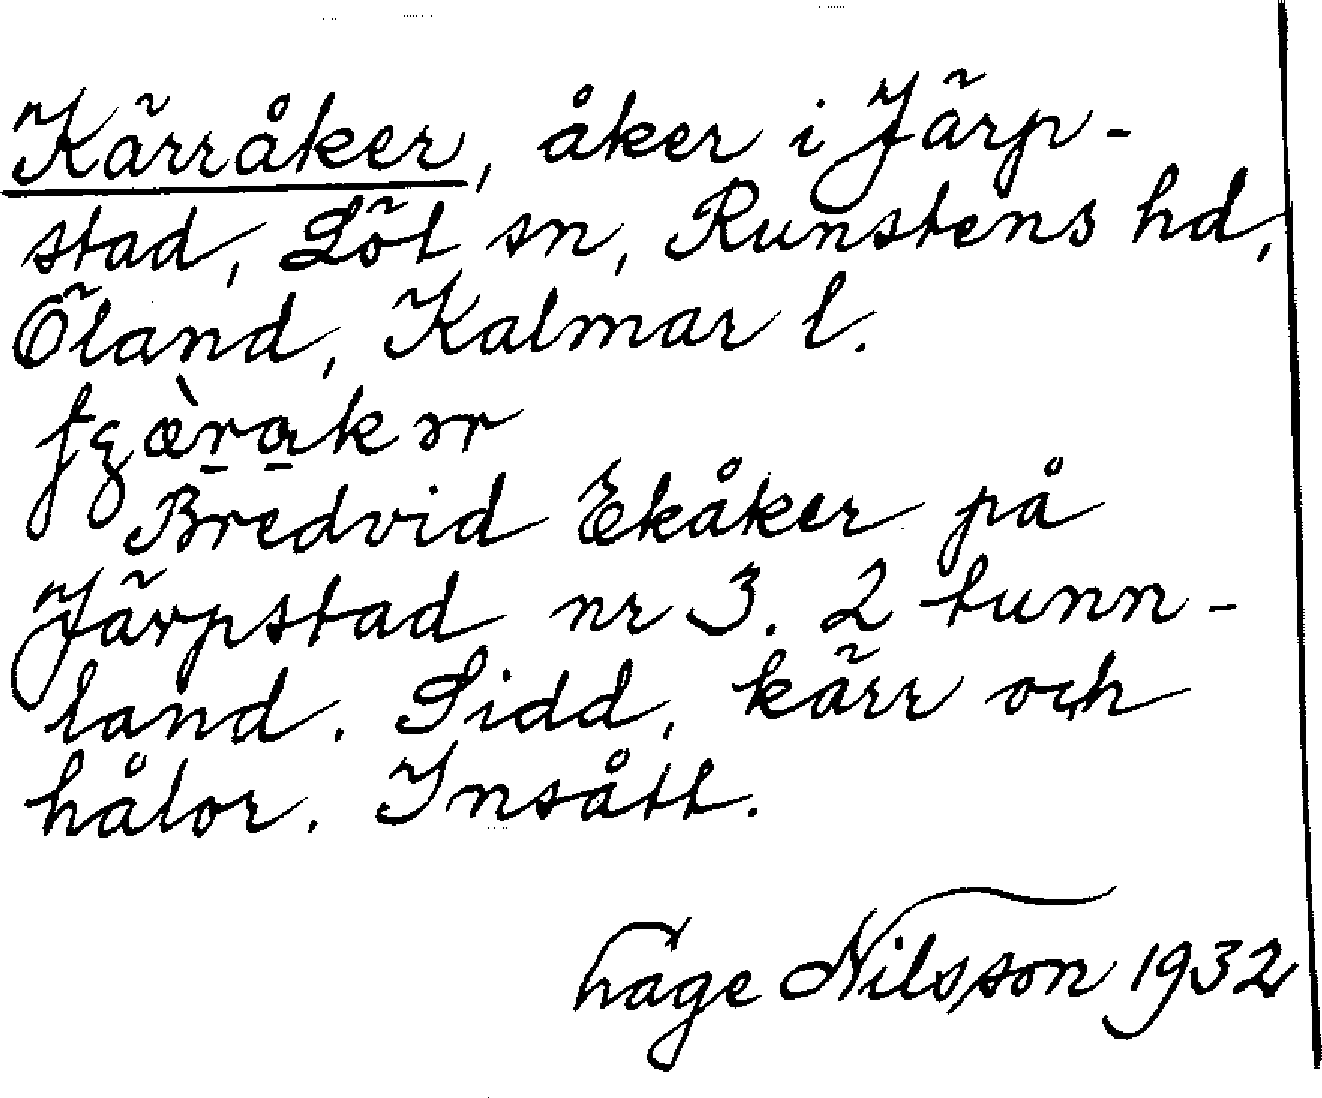 Kärråker, åker i Järp-
stad, Löt sn, Runstens hd,
Öland, Kalmar l.
Bredvid Ekåker på
Järpstad nr 3. 2 tunn-
land. Sidd, kärr och
hålor. Insått.
Hage Nilsson 1932